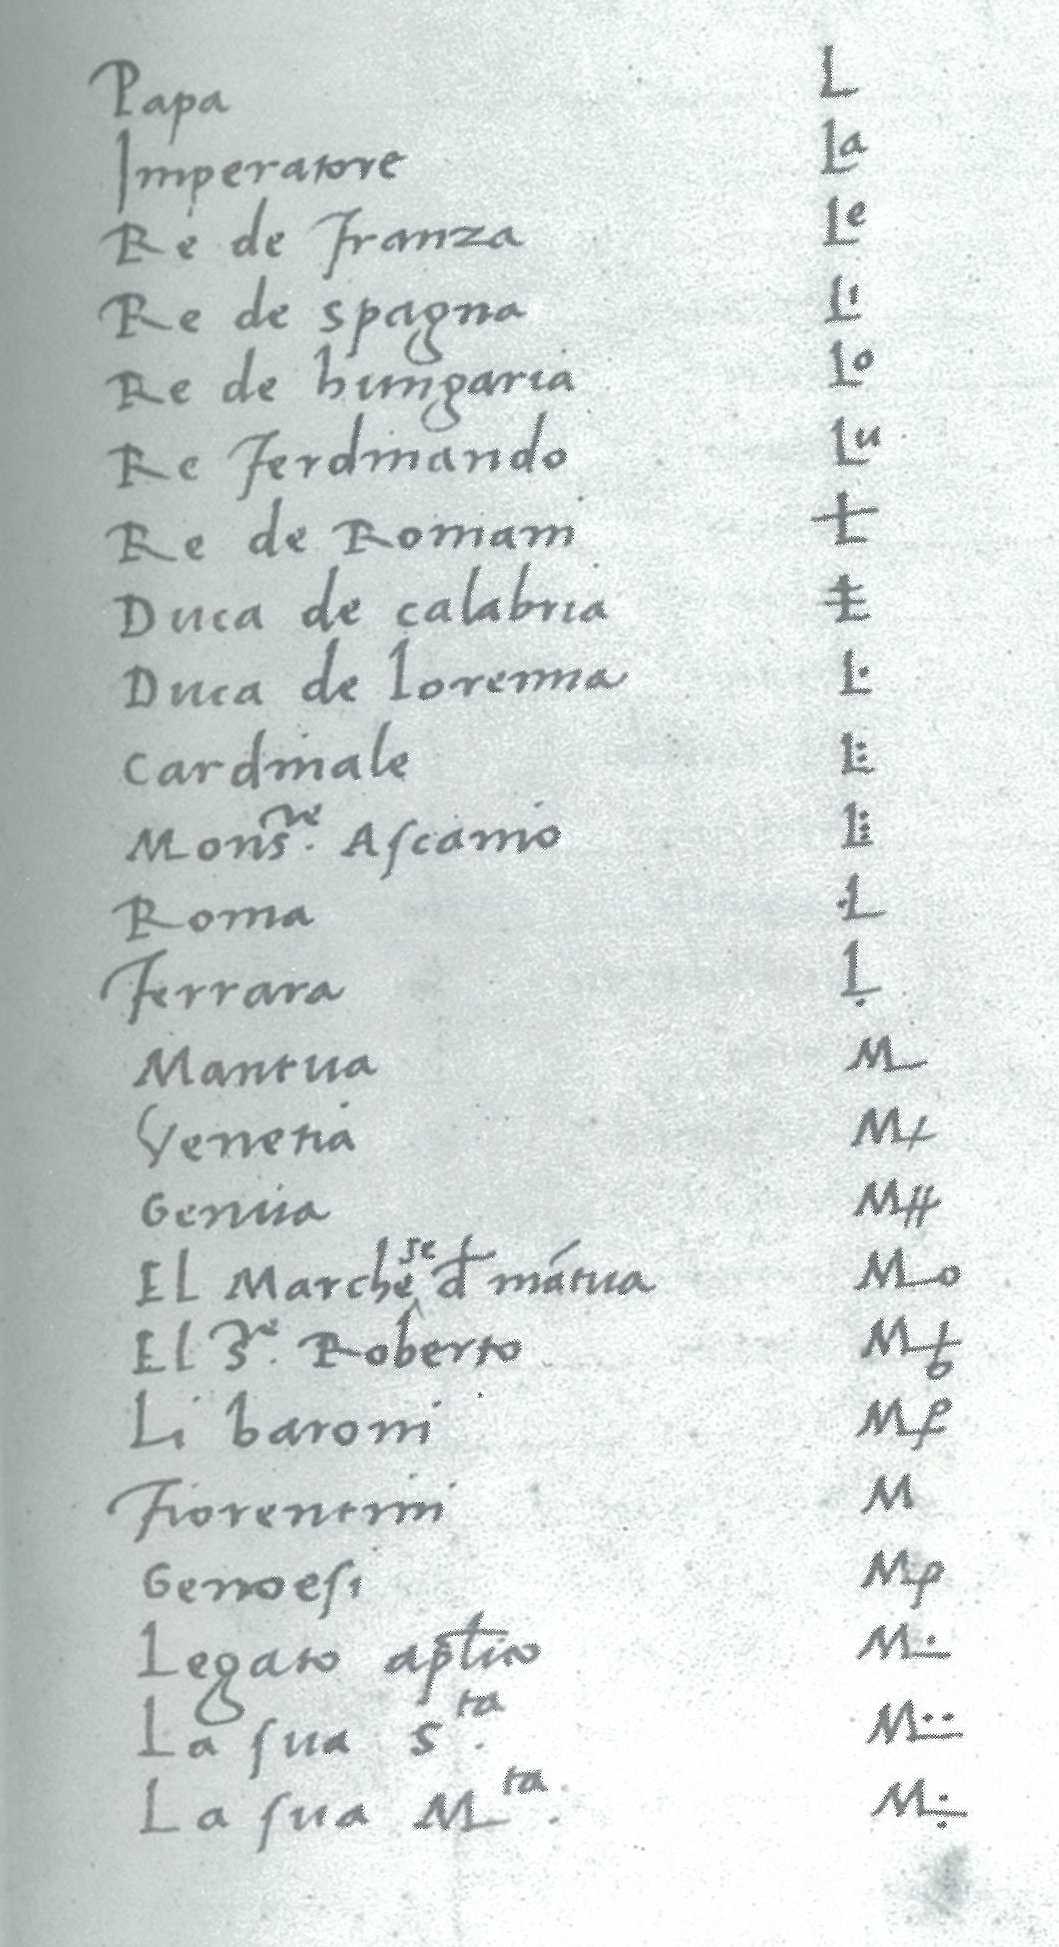 Papa L
Imperatore Lᵃ
Re de Franza Lᵉ
Re de spagna Lⁱ
Re de hungaria Lᵒ
Re Ferdinando Lᵘ
Re de Romani
Duca de calabria
Duca de Lorenna L·
Cardinale L:
Monsʳᵉ. Ascanio L⋮
Roma ·L
Ferrara Ḷ
Mantua M
Venetia
Genua
El Marchese d mātua Mo
El Sʳᵉ. Roberto
Li baroni
Fiorentini M
Genoesi
Legato aplico M·
La sua Sᵗᵃ. M··
La sua Mᵗᵃ. M: